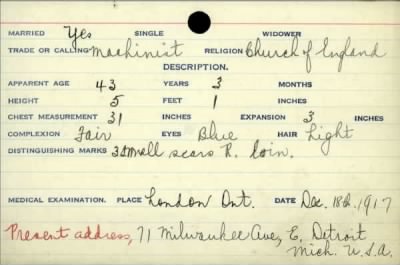 MARRIED Yes SINGLE WIDOWER
TRADE OR CALLING Machinist RELIGION Church of England
DESCRIPTION.
APPARENT AGE 43 YEARS 3 MONTHS
HEIGHT 5 FEET 1 INCHES
CHEST MEASUREMENT 31 INCHES EXPANSION 3 INCHES
COMPLEXION Fair EYES Blue HAIR Light
DISTINGUISHING MARKS 3 small scars R. loin.
MEDICAL EXAMINATION. PLACE London Ont. DATE Dec. 18th. 1917
Present address, 71 Milwaukee Ave, E. Detroit
Mich. U.S.A.